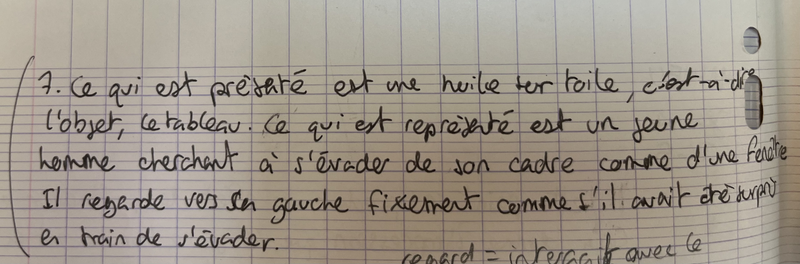 7. Ce qui est présenté est une huile sur toile, c'est-à-dire
l'objet, le tableau. Ce qui est représenté est un jeune
homme cherchant à s'évader de son cadre comme d'une fenêtre
Il regarde vers sa gauche fixement comme s'il avait été surpris
en train de s'évader.
regard = interagit avec le